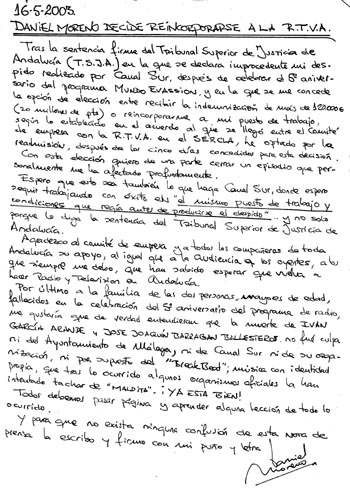 16-5-2003.
DANIEL MORENO DECIDE REINCORPORARSE A LA R.T.V.A.
Tras la sentencia firme del Tribunal Superior de Justicia de
Andalucía (T.S.J.A.) en la que se declara improcedente mi des-
pido realizado por Canal Sur, después de celebrar el 5º aniver-
sario del programa MUNDO EVASSION, y en la que se me concede
la opción de elección entre recibir la indemnización de más de 120000 €
(20 millones de pts) o reincorporarme a mi puesto de trabajo,
según lo establecido en el acuerdo al que se llegó entre el Comité
de empresa con la R.T.V.A. en el SERCLA, he optado por la
readmisión, después de los cinco días concedidos para esta decisión.
Con esta decisión quiero de una parte cerrar un episodio que per-
sonalmente me ha afectado profundamente.
Espero que esto sea también lo que haga Canal Sur, donde espero
seguir trabajando con éxito en "el mismo puesto de trabajo y
condiciones que regía antes de producirse el despido"... y no solo
porque lo diga la sentencia del Tribunal Superior de Justicia de
Andalucía.
Agradezco al comité de empresa y a todos los compañeros de toda
Andalucía su apoyo, al igual que a la Audiencia, a los oyentes, a los
que siempre me debo, que han sabido esperar que vuelva a
hacer Radio y Television en Andalucía.
Por último a la familia de las dos personas, mayores de edad,
fallecidos en la celebración del 5º aniversario del programa de radio,
me gustaría que de verdad entendieran que la muerte de IVAN
GARCÍA ARANJE y JOSE JOAQUÍN BARRAGAN BALLESTEROS, no fué culpa
ni del Ayuntamiento de Málaga, ni de Canal Sur ni de su orga-
nización, ni por supuesto del "BreakBeat"; música con identidad
propia, que tras lo ocurrido algunos organismos oficiales la han
intentado tachar de "MALDITA". ¡YA ESTÁ BIEN!
Todos debemos pasar página y aprender alguna lección de todo lo
ocurrido.
Y para que no exista ninguna confusión de esta nota de
prensa la escribo y firmo con mi puño y letra
Daniel
Moreno